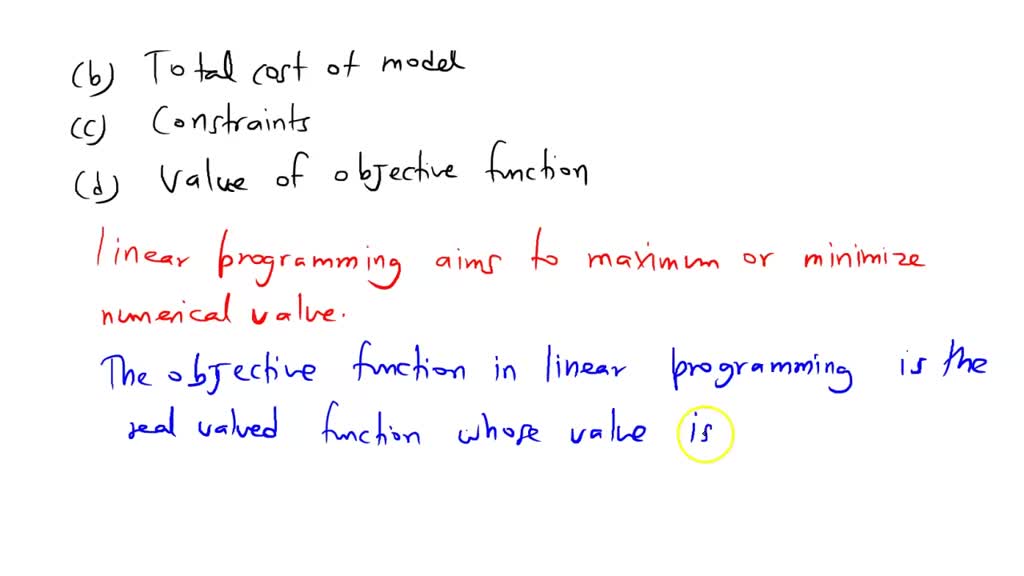 (b) Total cost of model
(c) Constraints
(d) Value of objective function
linear programming aims to maximum or minimize
numerical value.
The objective function in linear programming is the
real valued function whose value is